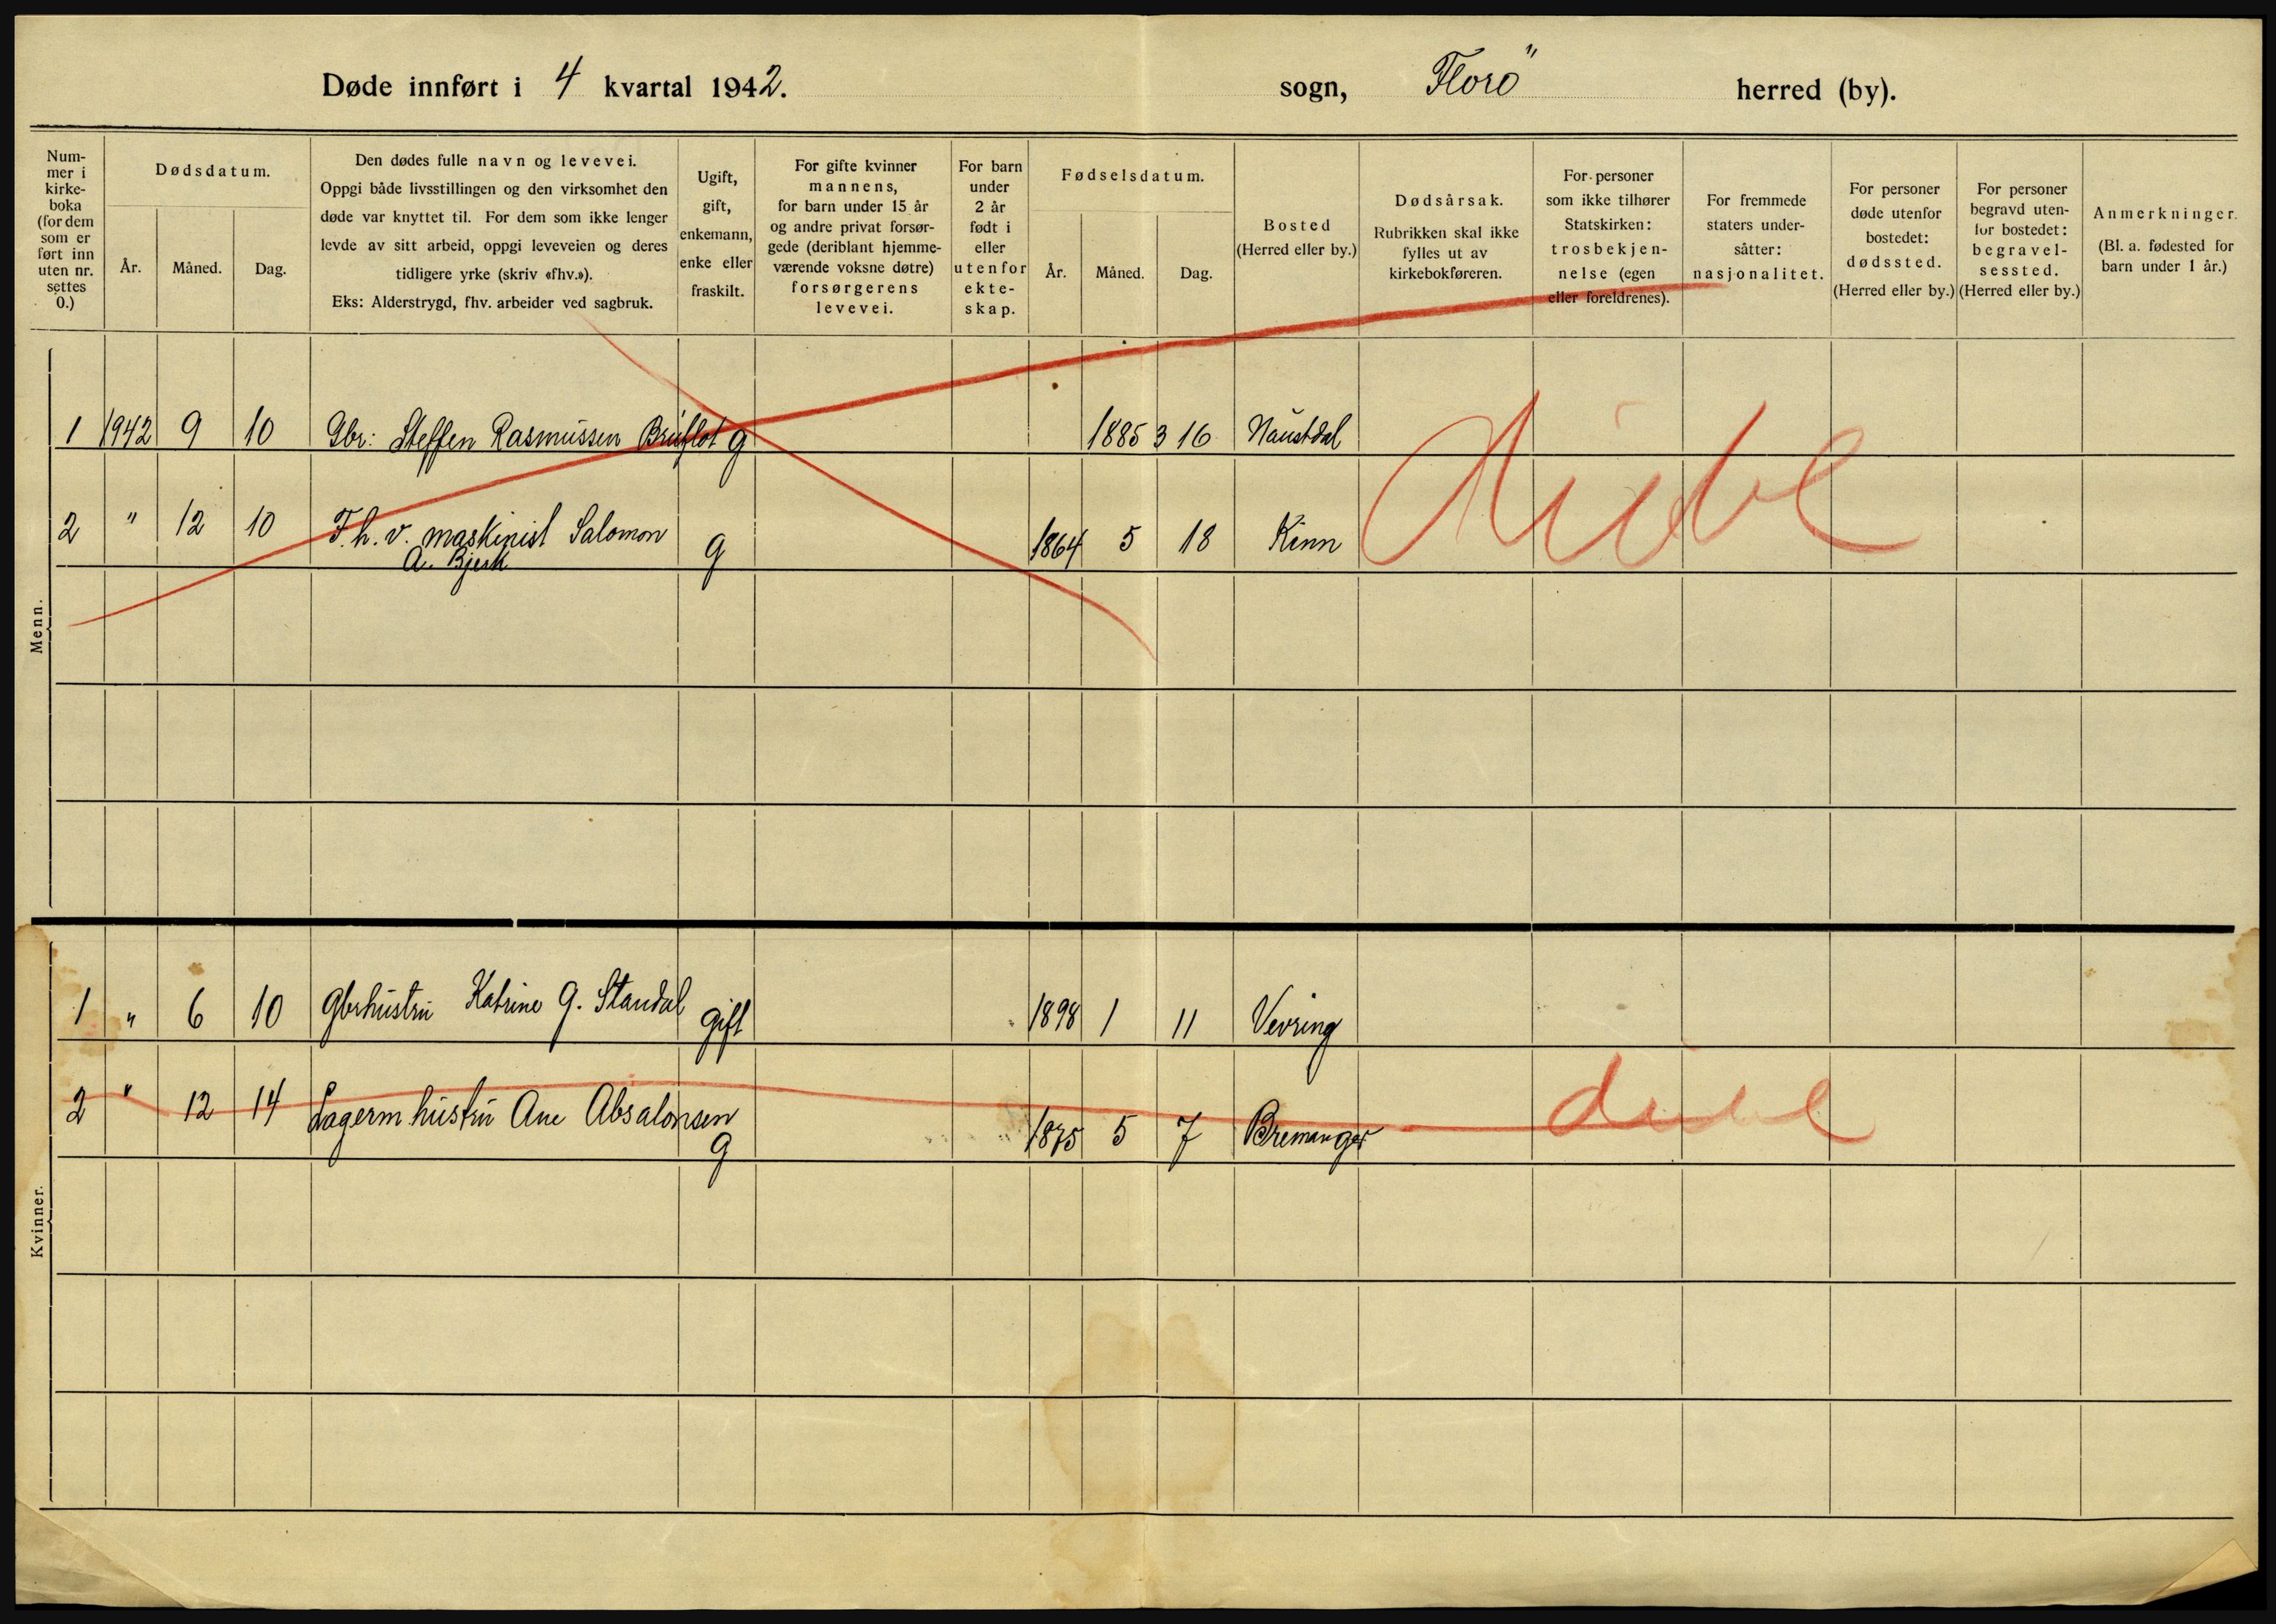 Døde innført i 4 kvartal 1942. sogn, Florö herred (by).
Num-
mer i
kirke-
boka
(for dem
som er
ført inn
uten nr.
settes
0.)
Dødsdatum.
År. Måned. Dag.
Den dødes fulle navn og levevei.
Oppgi både livsstillingen og den virksomhet den
døde var knyttet til. For dem som ikke lenger
levde av sitt arbeid, oppgi leveveien og deres
tidligere yrke (skriv «fhv.»).
Eks: Alderstrygd, fhv. arbeider ved sagbruk.
Ugift,
gift,
enkemann,
enke eller
fraskilt.
For gifte kvinner
mannens,
for barn under 15 år
og andre privat forsør-
gede (deriblant hjemme-
værende voksne døtre)
forsørgerens
levevei.
For barn
under
2 år
født i
eller
utenfor
ekte-
skap.
Fødselsdatum.
År. Måned. Dag.
Bosted
(Herred eller by.)
Dødsårsak.
Rubrikken skal ikke
fylles ut av
kirkebokføreren.
For personer
som ikke tilhører
Statskirken:
trosbekjen-
nelse (egen
eller foreldrenes).
For fremmede
staters under-
såtter:
nasjonalitet.
For personer
døde utenfor
bostedet:
dødssted.
(Herred eller by.)
For personer
begravd uten-
for bostedet:
begravel-
sessted.
(Herred eller by.)
Anmerkninger.
(Bl. a. fødested for
barn under 1 år.)
Menn.
1 1942 9 10 Gbr: Steffen Rasmussen Bruflot g 1885 3 16 Naustdal
2 " 12 10 F.h.v. maskinist Salomon g 1864 5 18 Kinn
A. Bjerk
Kvinner.
1 " 6 10 Gbrhustru Katrine G. Standal gift 1898 1 11 Vevring
2 " 12 14 Lagerm hustru Ane Absalonsen g 1875 5 7 Bremanger